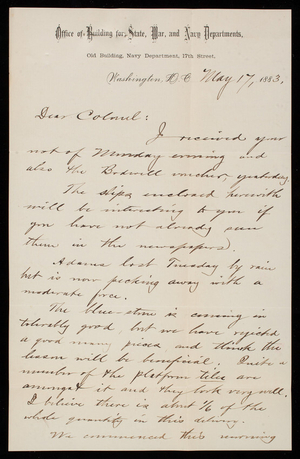 Office of Building for State, War, and Navy Departments,
Old Building, Navy Department, 17th Street,
Washington, D.C. May 17, 1883.
Dear Colonel:
I received your
not of Monday evening and
also the Bodwell voucher, yesterday.
The slips enclosed herewith
will be interesting to you if
you have not already seen
them in the newspapers.
Adams lost Tuesday by rain
but is now pecking away with a
moderate force.
The blue-stone is coming in
tolerably good, but we have rejected
a good many pieces and think the
lesson will be beneficial. Quite a
number of the platform tiles are
amongst it and they look very well.
I believe there is about 1/6 of the
whole quantity in this delivery.
We commenced this morning